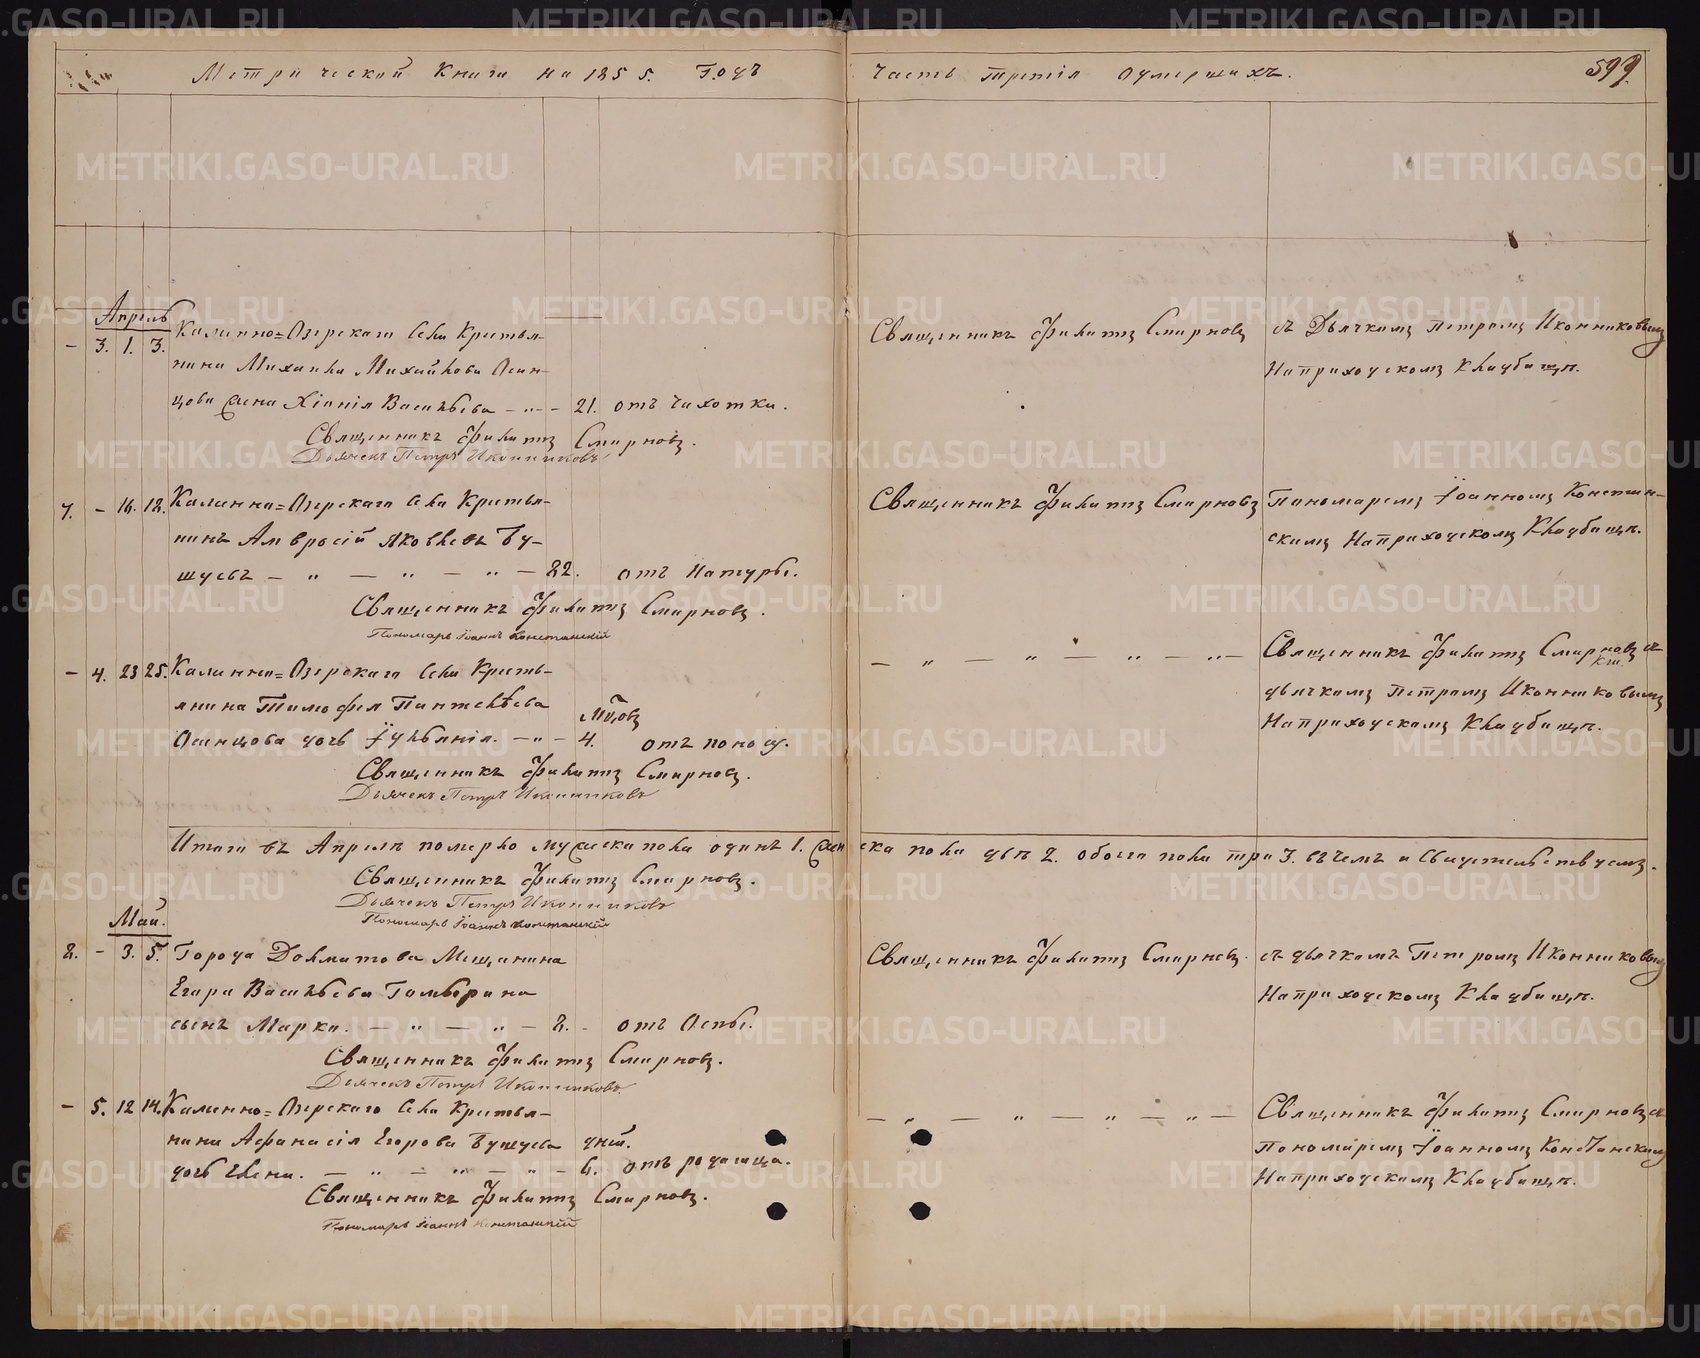 Метрической Книги на 1855. Годъ
Часть третія оумершихъ.
599.
Апрель
– 3. 1. 3. Калинно=Озерскаго Села Крестья-
нина Михаила Михайлова Осин-
цова жена Хіонія Васильева – „ – 21. отъ чахотки.
Священникъ Филиппъ Смирновъ.
Дьячекъ Петръ Иконниковъ
Священникъ Филиппъ Смирновъ
съ Дьячкомъ Петромъ Иконниковымъ
На приходскомъ Кладбищѣ.
7. – 16. 18. Калинно=Озерскаго Села Крестья-
нинъ Амвросій Яковлевъ Бу-
шуевъ – „ – „ – „ – 82. отъ Натуры.
Священникъ Филиппъ Смирновъ.
Пономарь Іоаннъ Констанскій
Священникъ Филиппъ Смирновъ
Пономаремъ Іоанномъ Констан-
скимъ На приходскомъ Кладбищѣ.
– 4. 23 25. Калинно=Озерскаго Села Кресть-
янина Тимофея Пантелѣева
Осинцова дочь Іуліанія. – „ – 4. отъ поносу.
Мѣ,овъ
Священникъ Филиппъ Смирновъ.
Дьячекъ Петръ Иконниковъ
– „ – „ – „ – „ –
Священникъ Филиппъ Смирновъ съ
дьячкомъ Петромъ Иконниковымъ
На приходскомъ Кладбищѣ.
Итого въ Апрелѣ померло мужеска пола одинъ 1. женска пола двѣ 2. обоего пола три 3. въ чемъ и Свидетельствуемъ.
Священникъ Филиппъ Смирновъ.
Дьячекъ Петръ Иконниковъ
Пономарь Іоаннъ Констанскій
Май.
8. – 3. 5. Города Долматова Мещанина
Егора Васильева
сынъ Марко. – „ – „ – 2. – отъ Оспы.
Священникъ Филиппъ Смирновъ.
Дьячекъ Петръ Иконниковъ
Священникъ Филиппъ Смирновъ.
съ дьячкомъ Петромъ Иконниковымъ
На приходскомъ Кладбищѣ.
– 5. 12 14. Калинно=Озерскаго Села Крестья-
нина Афанасія Егорова Бушуева дней.
дочь Елена. – „ – „ – „ – 6. отъ родимца.
Священникъ Филиппъ Смирновъ.
Пономарь Іоаннъ Констанскій
– „ – „ – „ – „ –
Священникъ Филиппъ Смирновъ съ
Пономаремъ Іоанномъ Констанскимъ
На приходскомъ Кладбищѣ.